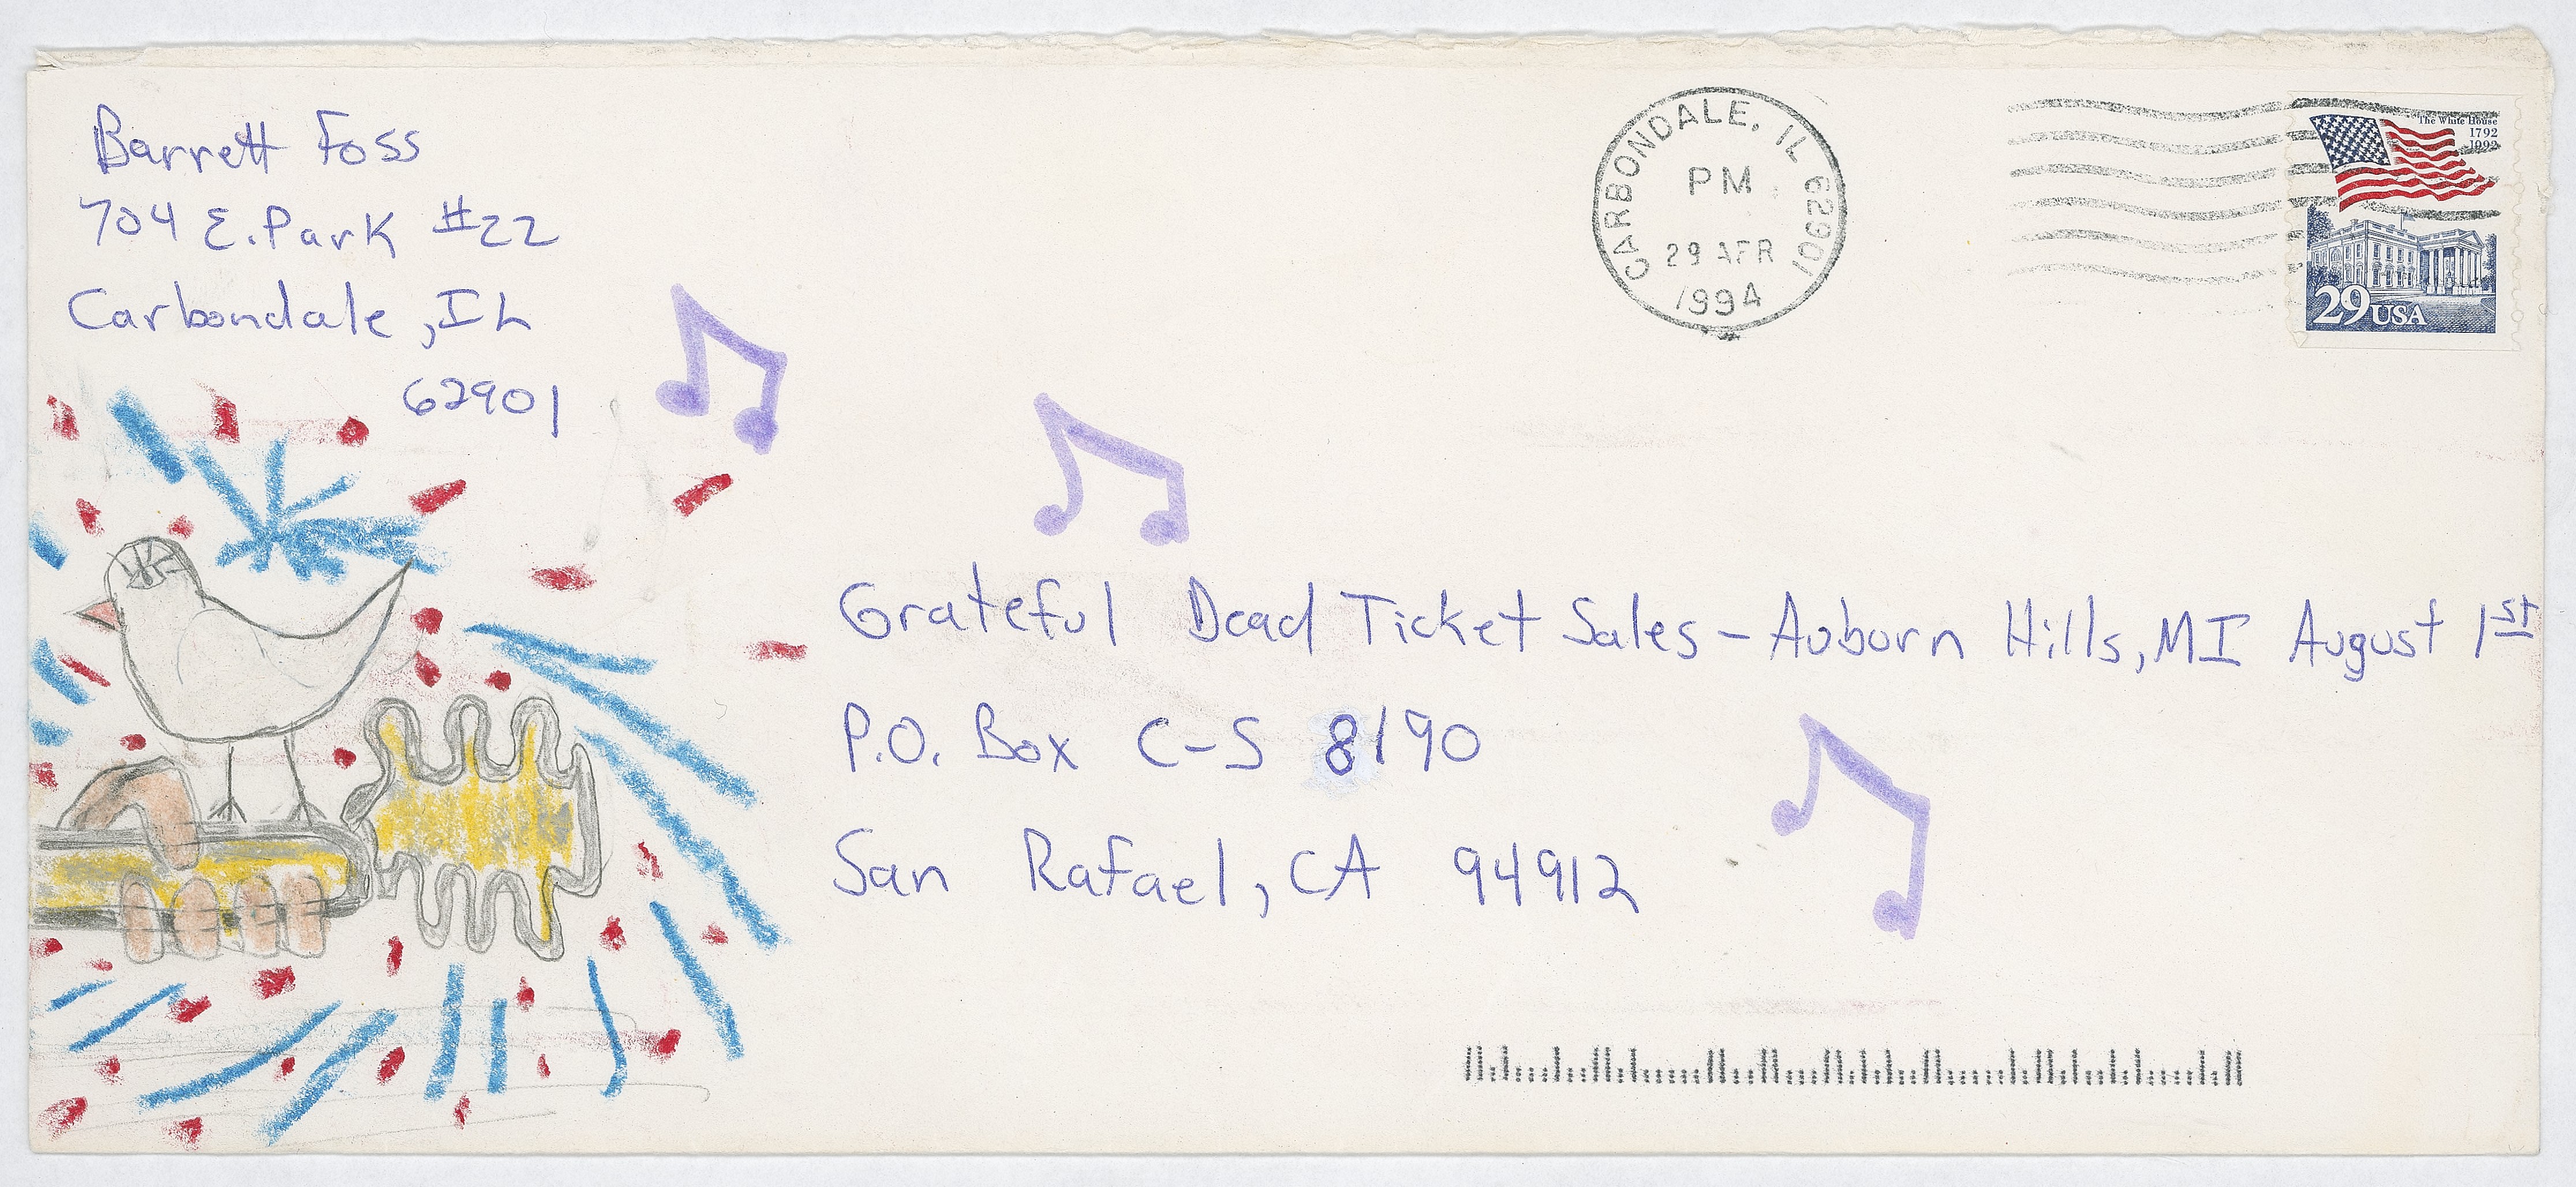 Barrett Foss
704 E. Park #22
Carbondale, IL
62901
CARBONDALE, IL 62901
PM
29 APR
1994
The White House
1792
1992
29 USA
Grateful Dead Ticket Sales - Auborn Hills, MI August 1st
P.O. Box C-S 8190
San Rafael, CA 94912